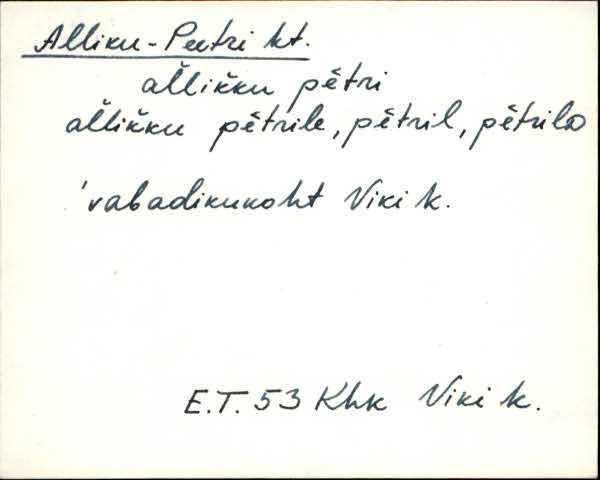 Alliku-Peetri kt.
al̆lik̆ku pĕtri
al̆lik̆ku pĕtrile, pĕtril, pĕtrilᴅ
'vabadikukoht Viki k.
E.T. 53 Khk Viki k.